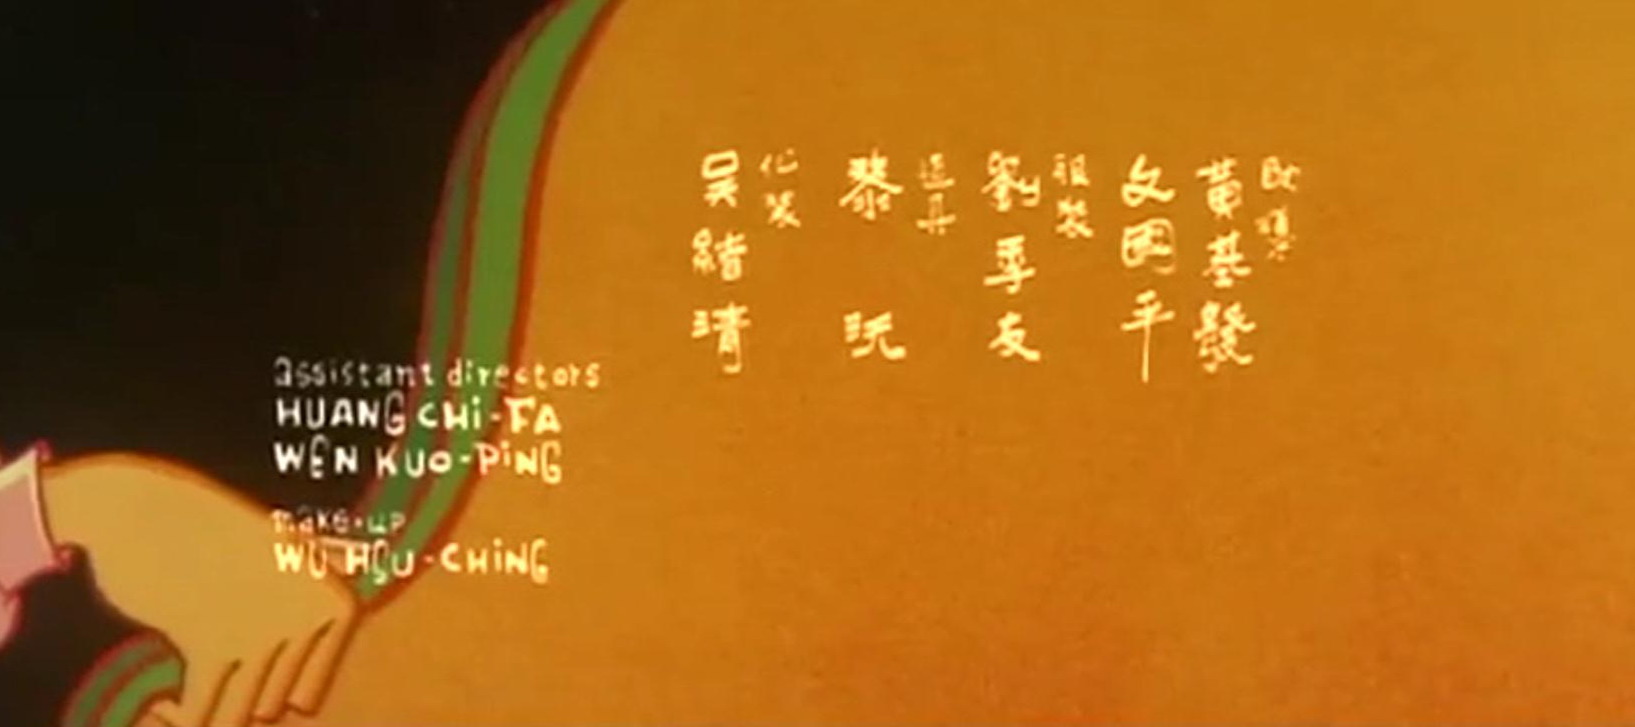 副導
黃基發
文國平
服裝
劉季友
道具
黎沅
化裝
吳緒清
assistant directors
HUANG CHi-FA
WEN KUO-PiNG
make-up
WU HSU-CHiNG